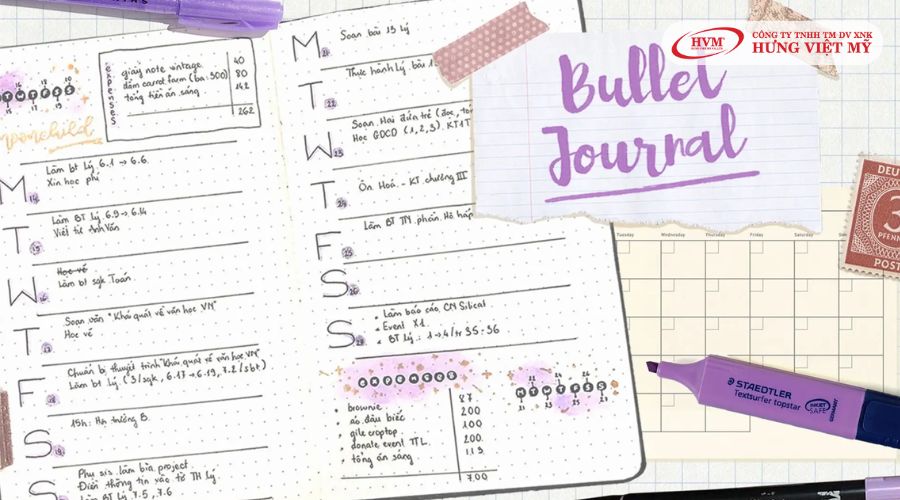 HVM
CÔNG TY TNHH TM DV XNK
HƯNG VIỆT MỸ
Bullet
Journal
expenses
giấy note vintage 40
dâm carrot farm (ba : 500) 80
tổng tiền ăn sáng 142
262
18 10
M T W T F S S
15 17
moonchild
M 14
Làm bt Lý 6.1 → 6.6
Xin học phí
T 15
Làm BT Lý 6.9 → 6.14
Viết từ Anh Văn
W 16
Học vẽ
Làm bt sgk Toán
T 17
Soạn văn "Khái quát về văn học VN"
Học vẽ
F 18
Chuẩn bị thuyết trình "Khái quát về văn học VN"
Làm bt Lý (3/sgk, 6.17 → 6.19, 7.2 / sbt)
S
15h: Hội trưởng B.
S 19
Phụ sis làm bìa project.
Điền thông tin xác tờ TH Lý
Làm BT Lý 7.5, 7.6
M 21
Soạn bài 13 Lý
T 22
Thực hành Lý bài 1
W 23
Soạn Hai đứa trẻ (đọc, tó
Học GDCD (1,2,3) KT1T
T 24
Ôn Hoá - KT chương III
F 25
Làm BT TN phần Hô hấp
S 26
S 28
Làm báo cáo CN Silicat
Event X1
BT Lý : 1 → 4/tr 35 - 36
expenses
brownie 87
áo dầu biếc 200
gile croptop 100
donate event TTL 200
tổng ăn sáng 113
700
22 24 26
M T W T F S S
21 23 25
Tuesday Wednesday Thursday Friday Saturday
DEU
3
PFENNI
POST
STAEDTLER
Textsurfer topstar
INKJET
SAFE
GERMANY